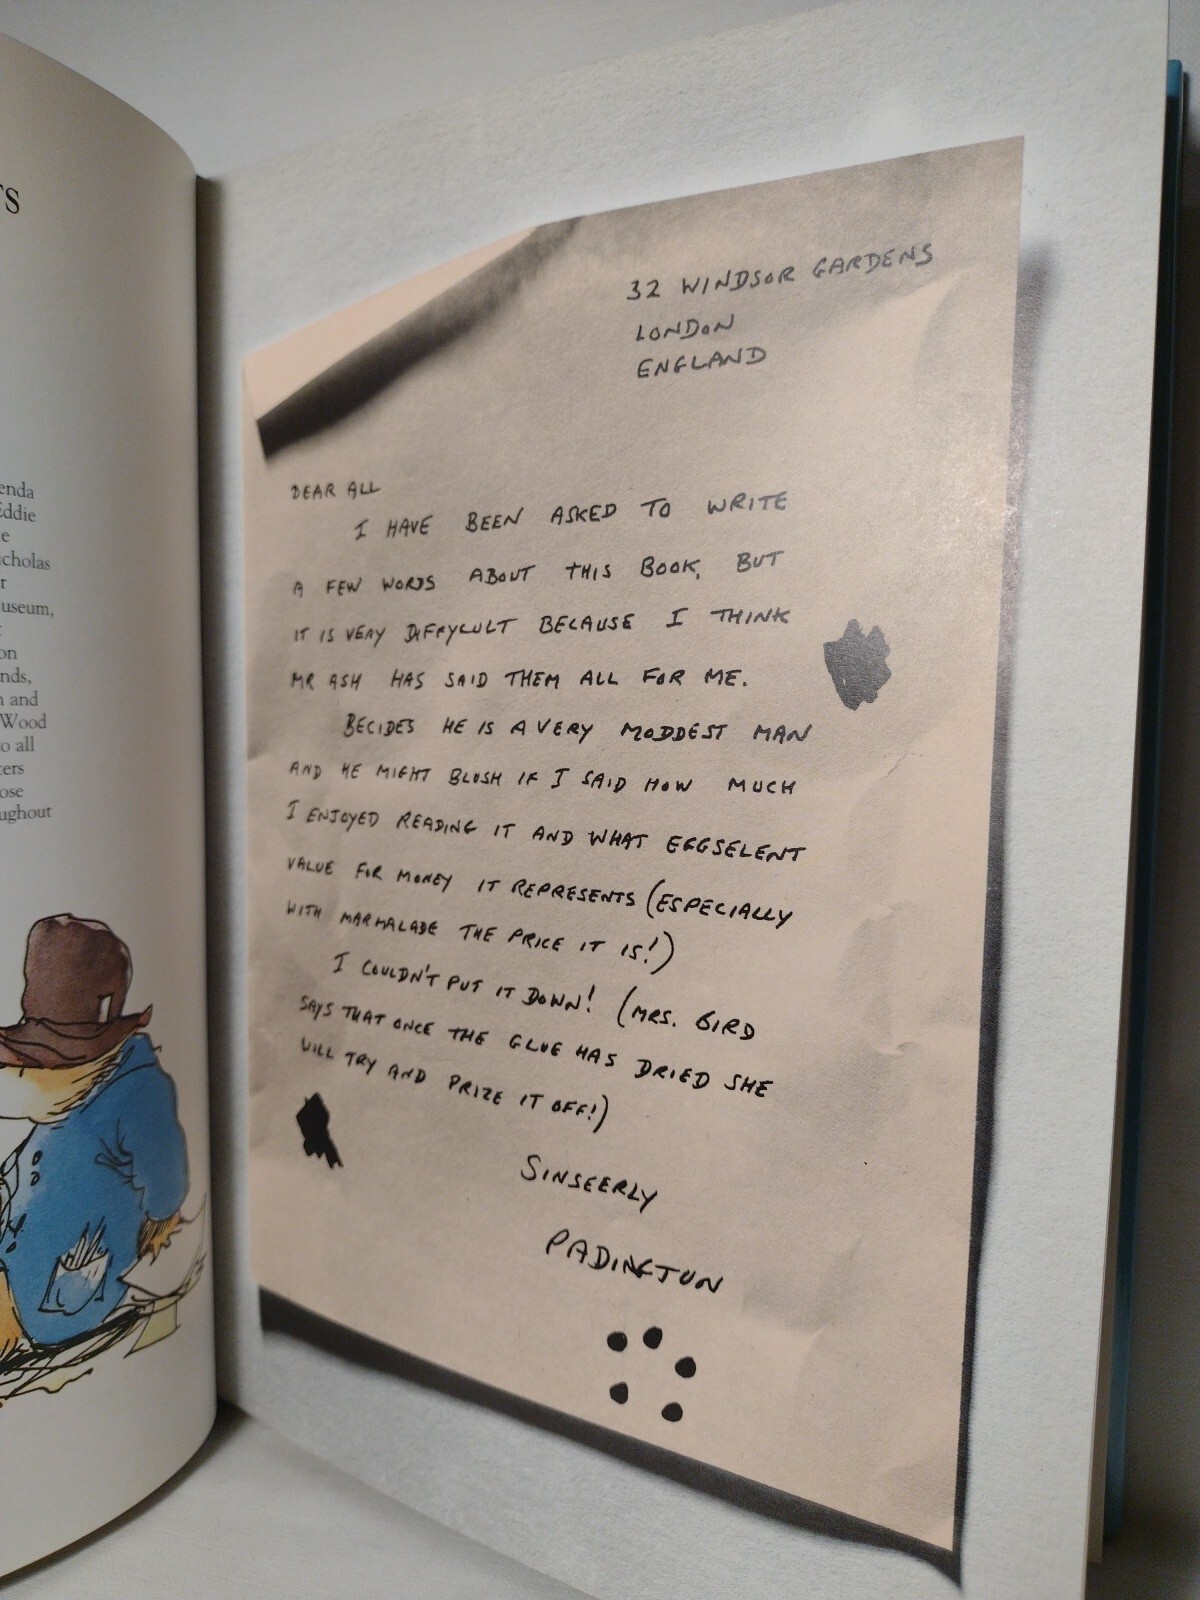 TS
enda
Eddie
e
icholas
r
useum,
t
on
nds,
n and
Wood
o all
ters
ose
ughout
32 WINDSOR GARDENS
LONDON
ENGLAND
DEAR ALL
I HAVE BEEN ASKED TO WRITE
A FEW WORDS ABOUT THIS BOOK, BUT
IT IS VERY DIFFYCULT BECAUSE I THINK
MR ASH HAS SAID THEM ALL FOR ME.
BECIDES HE IS A VERY MODDEST MAN
AND HE MIGHT BLUSH IF I SAID HOW MUCH
I ENJOYED READING IT AND WHAT EGGSELENT
VALUE FOR MONEY IT REPRESENTS (ESPECIALLY
WITH MARMALADE THE PRICE IT IS!)
I COULDN'T PUT IT DOWN! (MRS. BIRD
SAYS THAT ONCE THE GLUE HAS DRIED SHE
WILL TRY AND PRIZE IT OFF!)
SINSEERLY
PADINGTUN